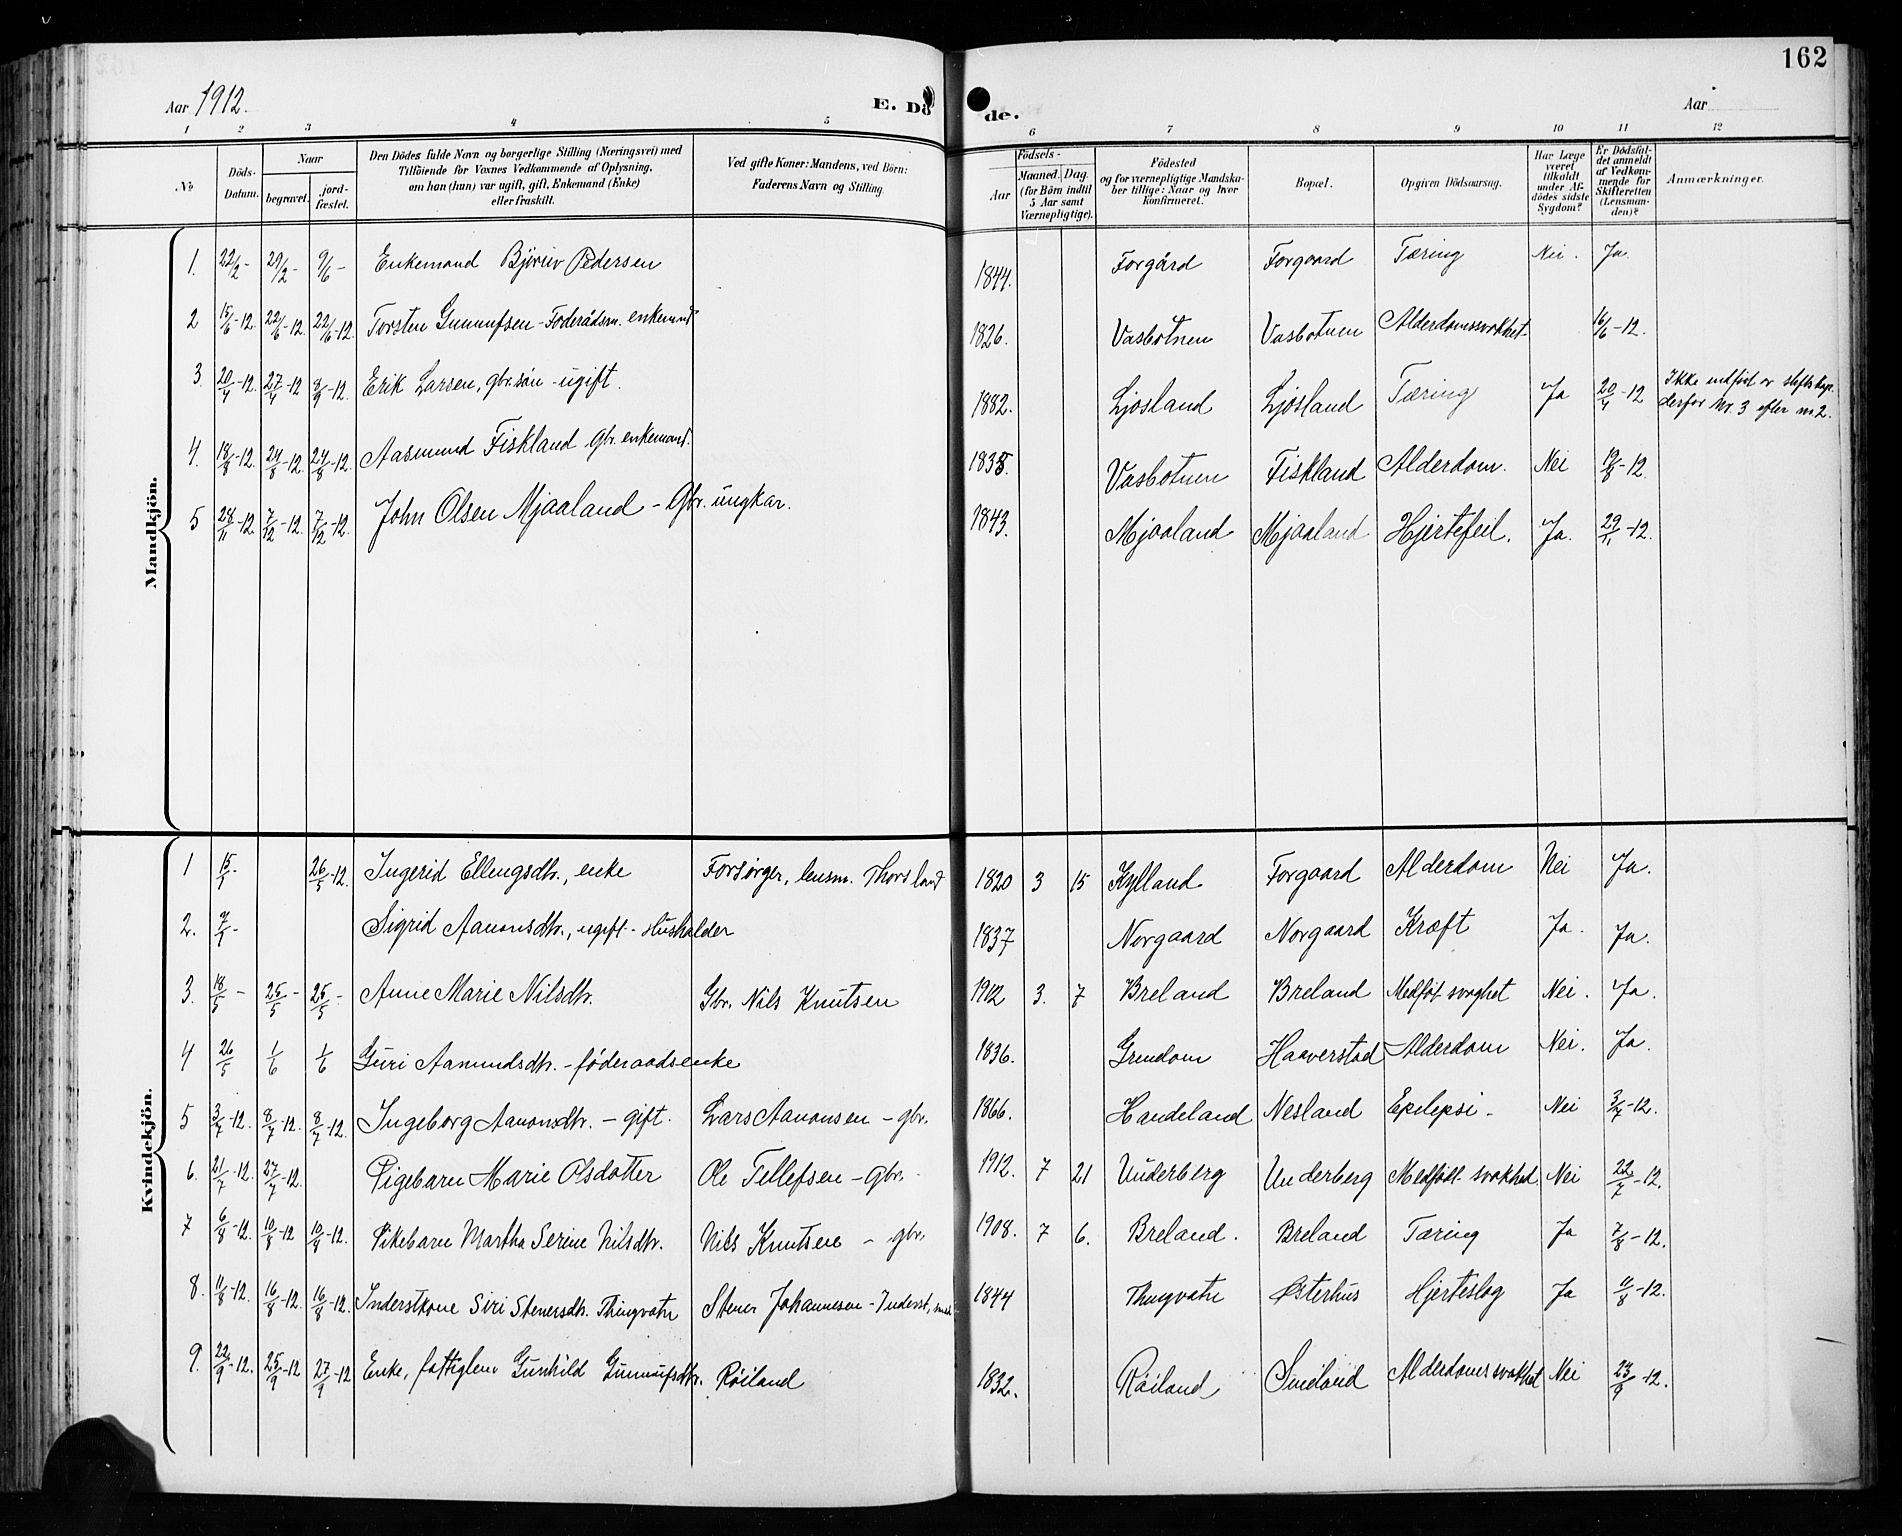 162
Aar 1912. E. Dö de. Aar
1 2 3 4 5 6 7 8 9 10 11 12
No Döds-Datum. Naar begravet. jord-fæstet. Den Dödes fulde Navn og borgerlige Stilling (Næringsvei) med Tilföiende for Voxnes Vedkommende af Oplysning, om han (hun) var ugift, gift, Enkemand (Enke) eller fraskilt. Ved gifte Koner: Mandens, ved Börn: Faderens Navn og Stilling. Födsels- Aar Maaned. Dag. (for Börn indtil 5 Aar samt Værnepligtige). Födested og for værnepligtige Mandskaber tillige: Naar og hvor konfirmeret. Bopæl. Opgiven Dödsaarsag. Har Læge været tilkaldt under Afdödes sidste Sygdom? Er Dödsfaldet anmeldt af Vedkommende for Skifteretten (Lensmanden)? Anmærkninger.
Mandkjön.
1. 22/2 - 29/2 - 9/6 - Enkemand Björuv Pedersen 1844. Forgård Forgaard Tæring Nei. Ja.
2 15/6-12. 22/6-12. 22/6-12. Torsten Gunnufsen - Foderådsm. enkemand 1826. Vasbotnen Vasbotnen Alderdomssvakhet 16/6-12.
3. 20/4-12. 27/4-12 8/9-12. Erik Larsen, gbr.sön - ugift. 1882. Ljosland Ljosland Tæring Ja 20/4-12 Ikke indfört av stiftskap. derfor Nr. 3 efter nr 2.
4. 18/8-12. 24/8-12. 24/8-12. Aasmund Fiskland gbr. enkemand. 1835. Vasbotnen Fiskland Alderdom. Nei 19/8-12.
5 28/11-12 7/12-12. 7/12-12. John Olsen Mjaaland - Gbr. ungkar. 1843. Mjaaland Mjaaland Hjertefeil. Ja. 29/11-12.
Kvindekjön.
1 15/1- 26/5-12. Ingerid Ellingsdtr., enke Forsörger, lensm. Thorsland 1820 3 15 Kylland Forgaard Alderdom Nei Ja.
2. 7/1- Sigrid Aanonsdtr., ugift - Husholder 1837 Norgaard Norgaard Kræft Ja. Ja.
3. 18/5 - 25/5 - 25/5 - Anne Marie Nilsdtr. Gbr. Nils Knutsen 1912 3. 7 Breland Breland Medföt svaghet Nei. Ja.
4 26/5 1/6 1/6 Guri Aamundsdtr. - föderaadsenke 1836. Grendom Haaverstad Alderdom Nei. Ja.
5 3/7-12. 8/7-12. 8/7-12. Ingeborg Aanonsdtr. - gift. Lars Aanonsen - gbr. 1866. Handeland Nesland Epilepsi - Nei 3/7-12.
6. 21/7-12. 27/7-12. Pigebarn Marie Olsdotter Ole Tellefsen - Gbr. 1912. 7 21 Underberg Underberg Medfödt svakhed Nei 22/7-12.
7 6/8-12. 10/8-12 10/8-12. Pikebarn Martha Serine Nilsdtr. Nils Knutsen - gbr. 1908. 7 6. Breland. Breland Tæring Ja 7/8-12.
8. 11/8-12. 16/8-12. 16/8-12. Inderstkone Siri Stenersdtr. Thingvatn Stener Johannesen - Inderst, 1844 Thingvatn Österhus Hjerteslag Ja 11/8-12.
9. 22/9-12. 25/9-12 27/9-12 Enke, fattiglem Gunhild Gunnufsdtr. Röiland 1832. Röiland Sinland Alderdomssvakhet Nei 23/9-12.